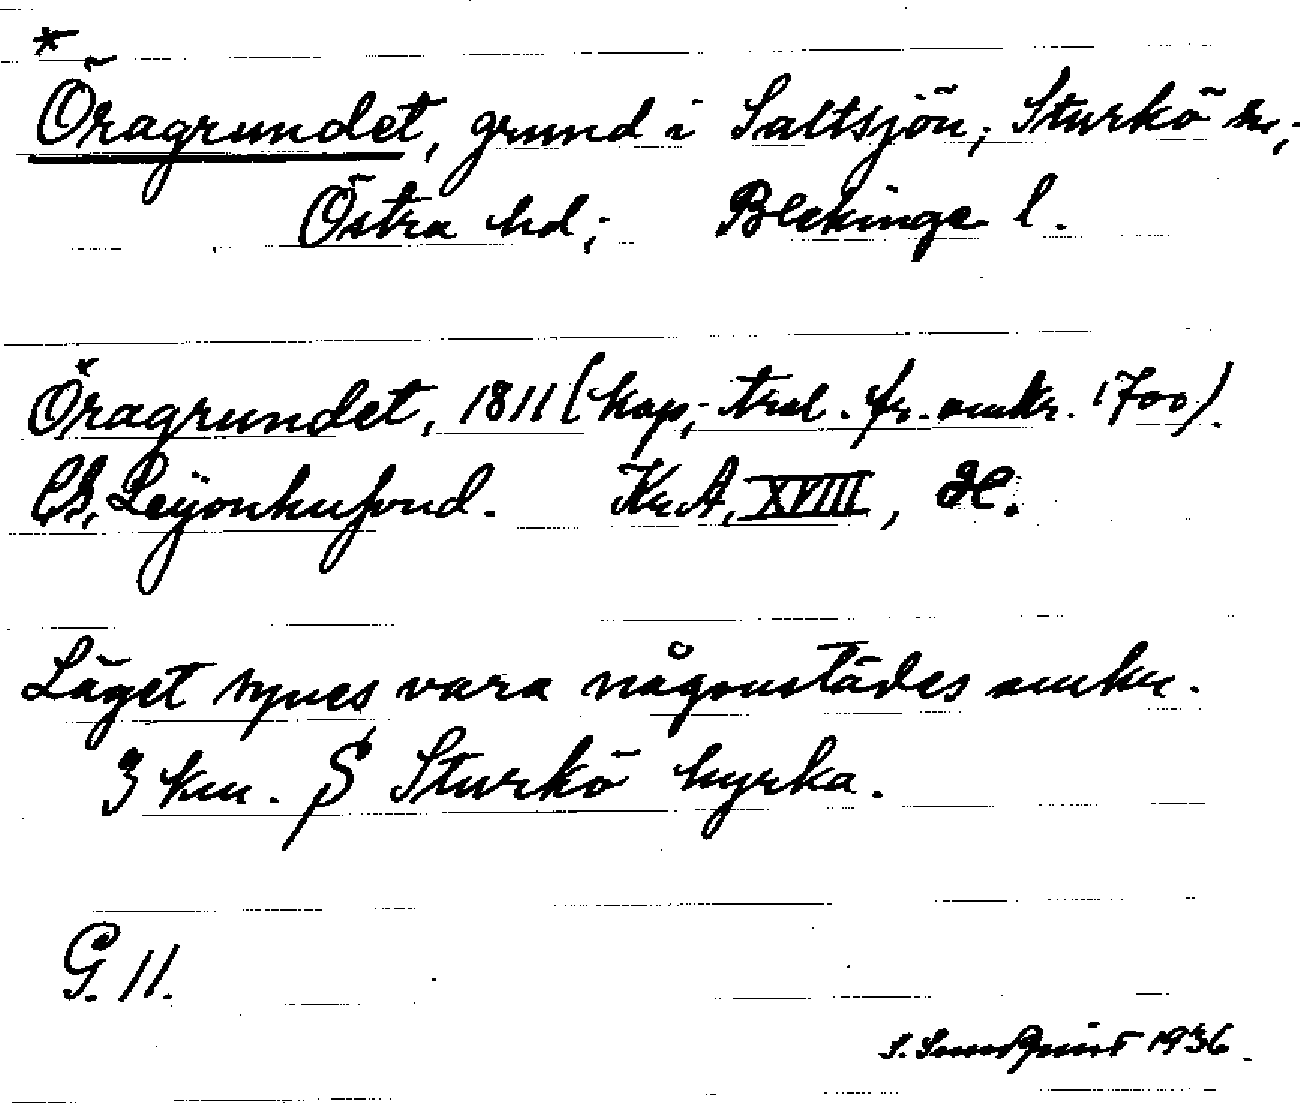 *
Öragrundet, grund i Saltsjön; Sturkö sn,
Östra hd; Blekinge l.
Öragrundet, 1811 (kop; tral. fr. omkr. 1700).
CG, Leijonhufvud. KrA, XVIII, H.
Läget synes vara någonstädes omkr.
3 km. S Sturkö kyrka.
G. 11.
S. Sundquist 1936